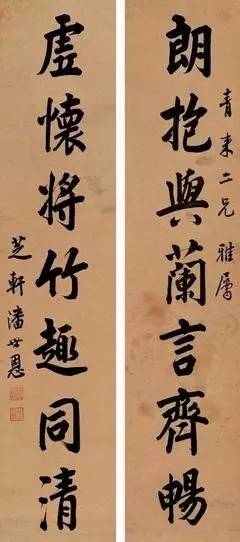 青来二兄雅屬
朗抱與蘭言齊暢
虛懷將竹趣同清
芝軒潘世恩